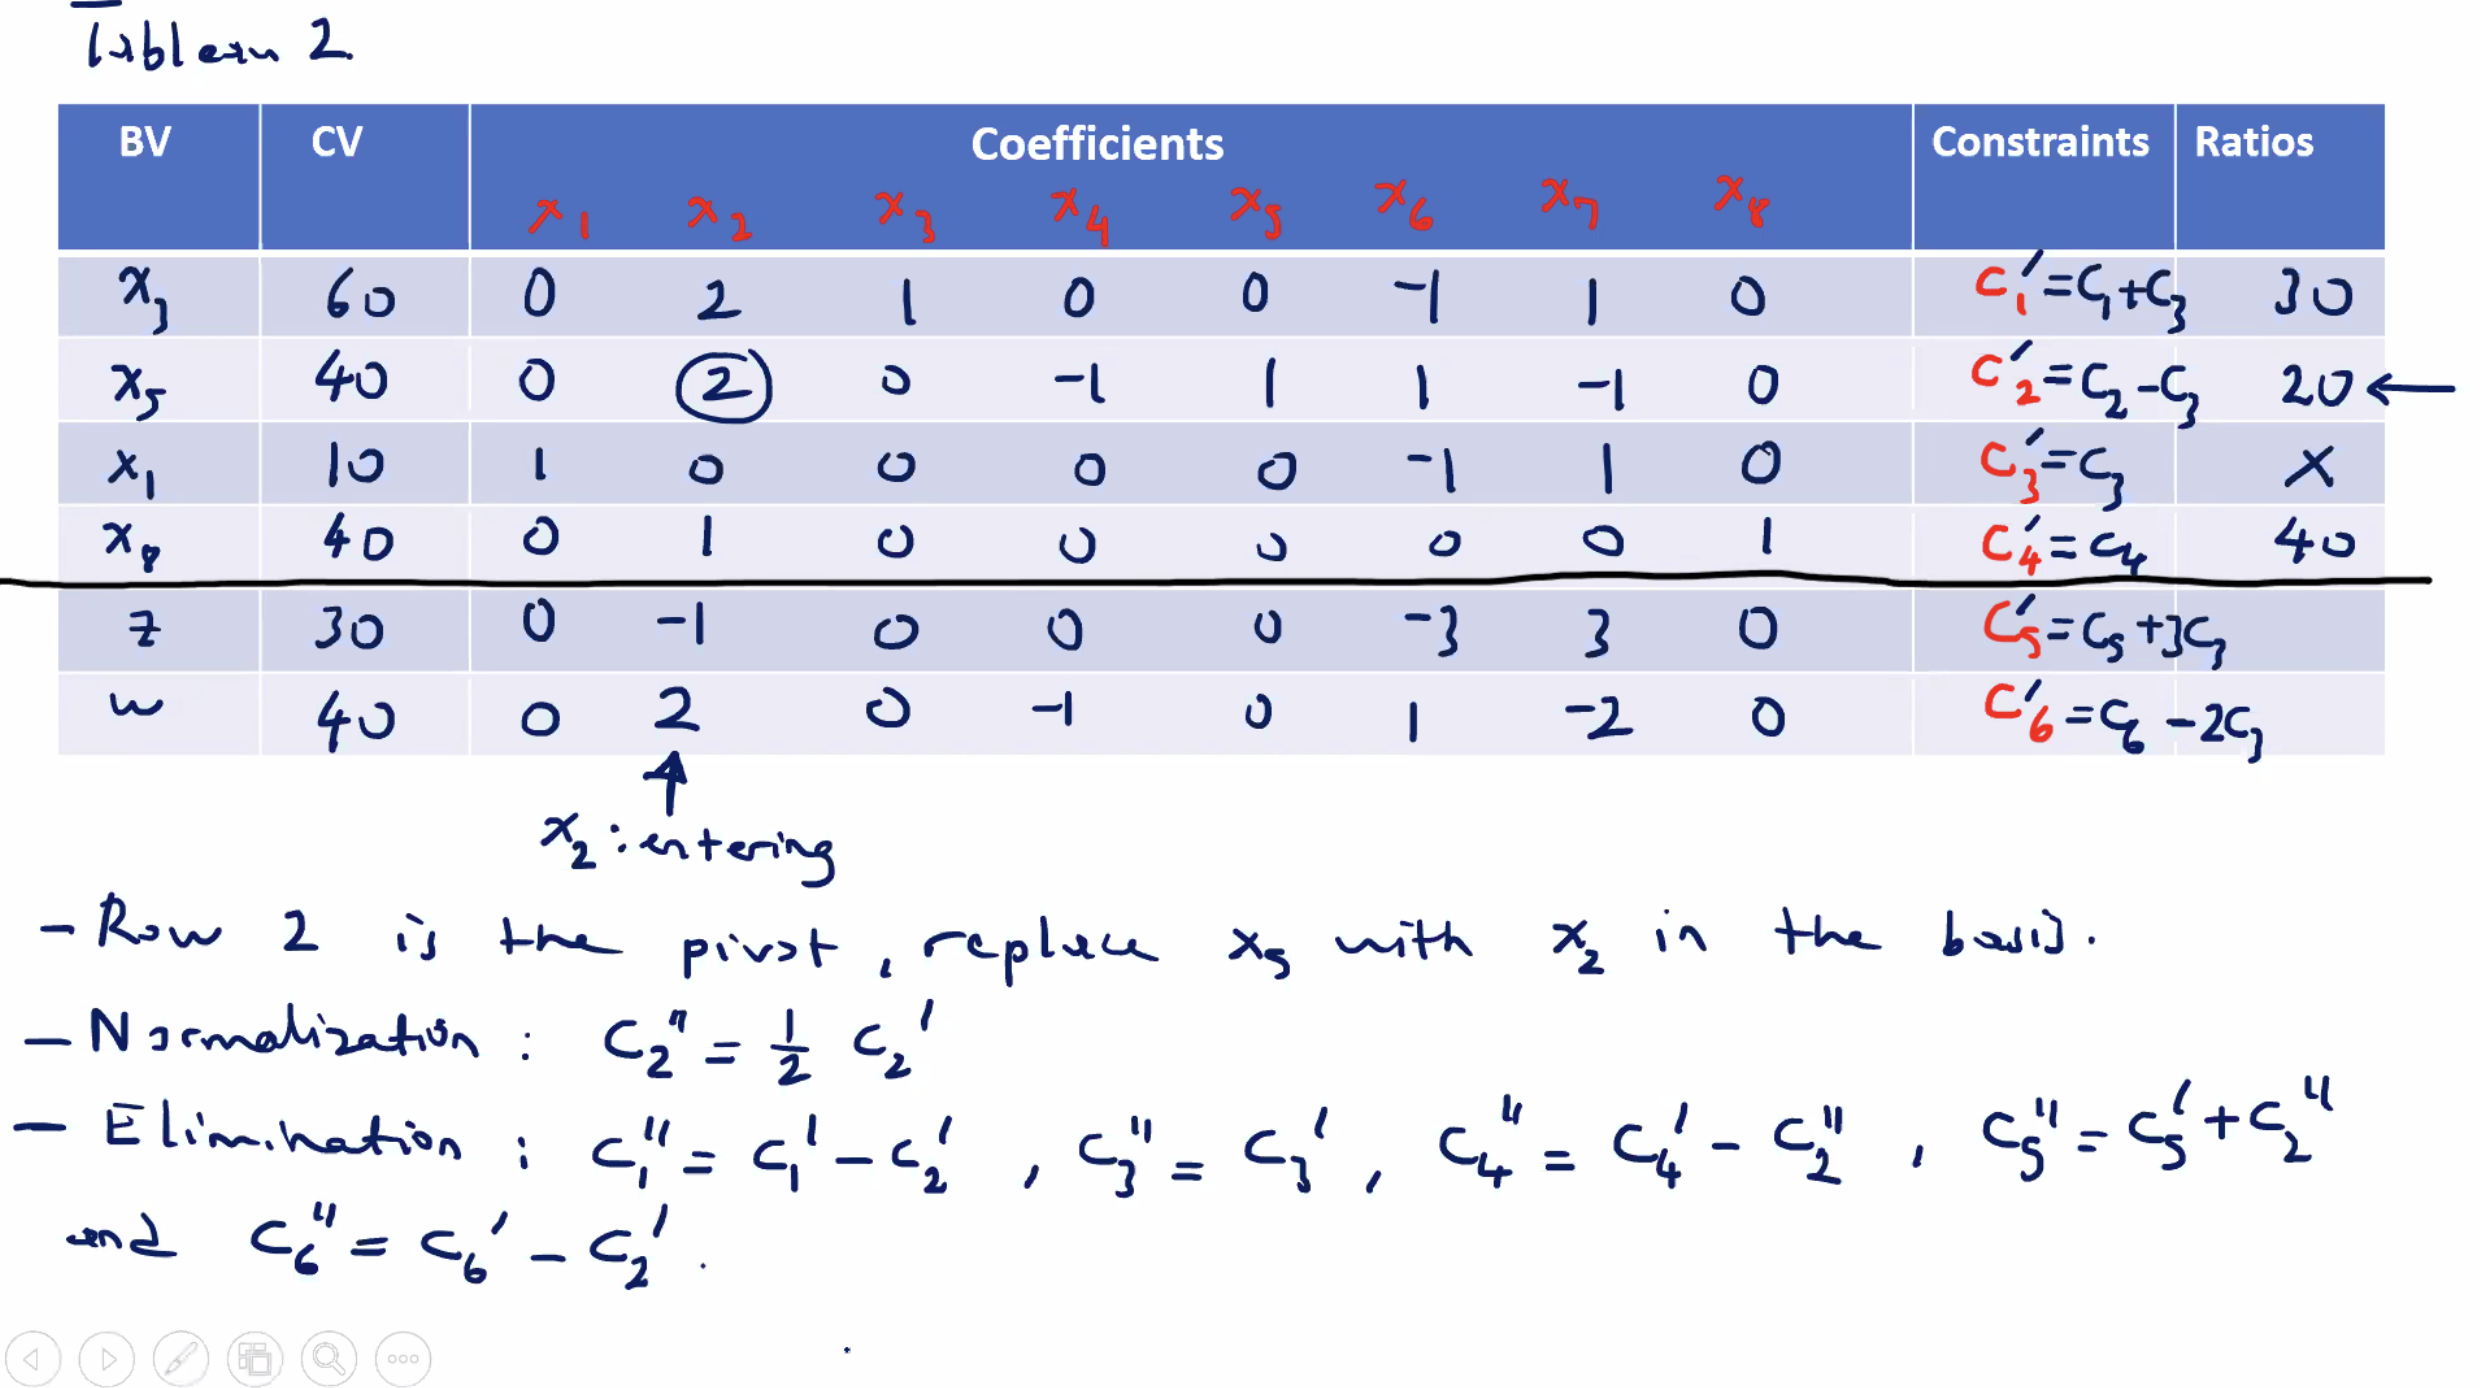 Tableau 2
BV CV Coefficients Constraints Ratios
x₁ x₂ x₃ x₄ x₅ x₆ x₇ x₈
x₃ 60 0 2 1 0 0 -1 1 0 C₁' = C₁ + C₃ 30
x₅ 40 0 2 0 -1 1 1 -1 0 C₂' = C₂ - C₃ 20 ←
x₁ 10 1 0 0 0 0 -1 1 0 C₃' = C₃ X
x₈ 40 0 1 0 0 0 0 0 1 C₄' = C₄ 40
z 30 0 -1 0 0 0 -3 3 0 C₅' = C₅ + 3C₃
w 40 0 2 0 -1 0 1 -2 0 C₆' = C₆ - 2C₃
x₂ : entering
- Row 2 is the pivot, replace x₅ with x₂ in the basis.
- Normalization : C₂'' = 1/2 C₂'
- Elimination : C₁'' = C₁' - C₂' , C₃'' = C₃' , C₄'' = C₄' - C₂'' , C₅'' = C₅' + C₂''
and C₆'' = C₆' - C₂' .